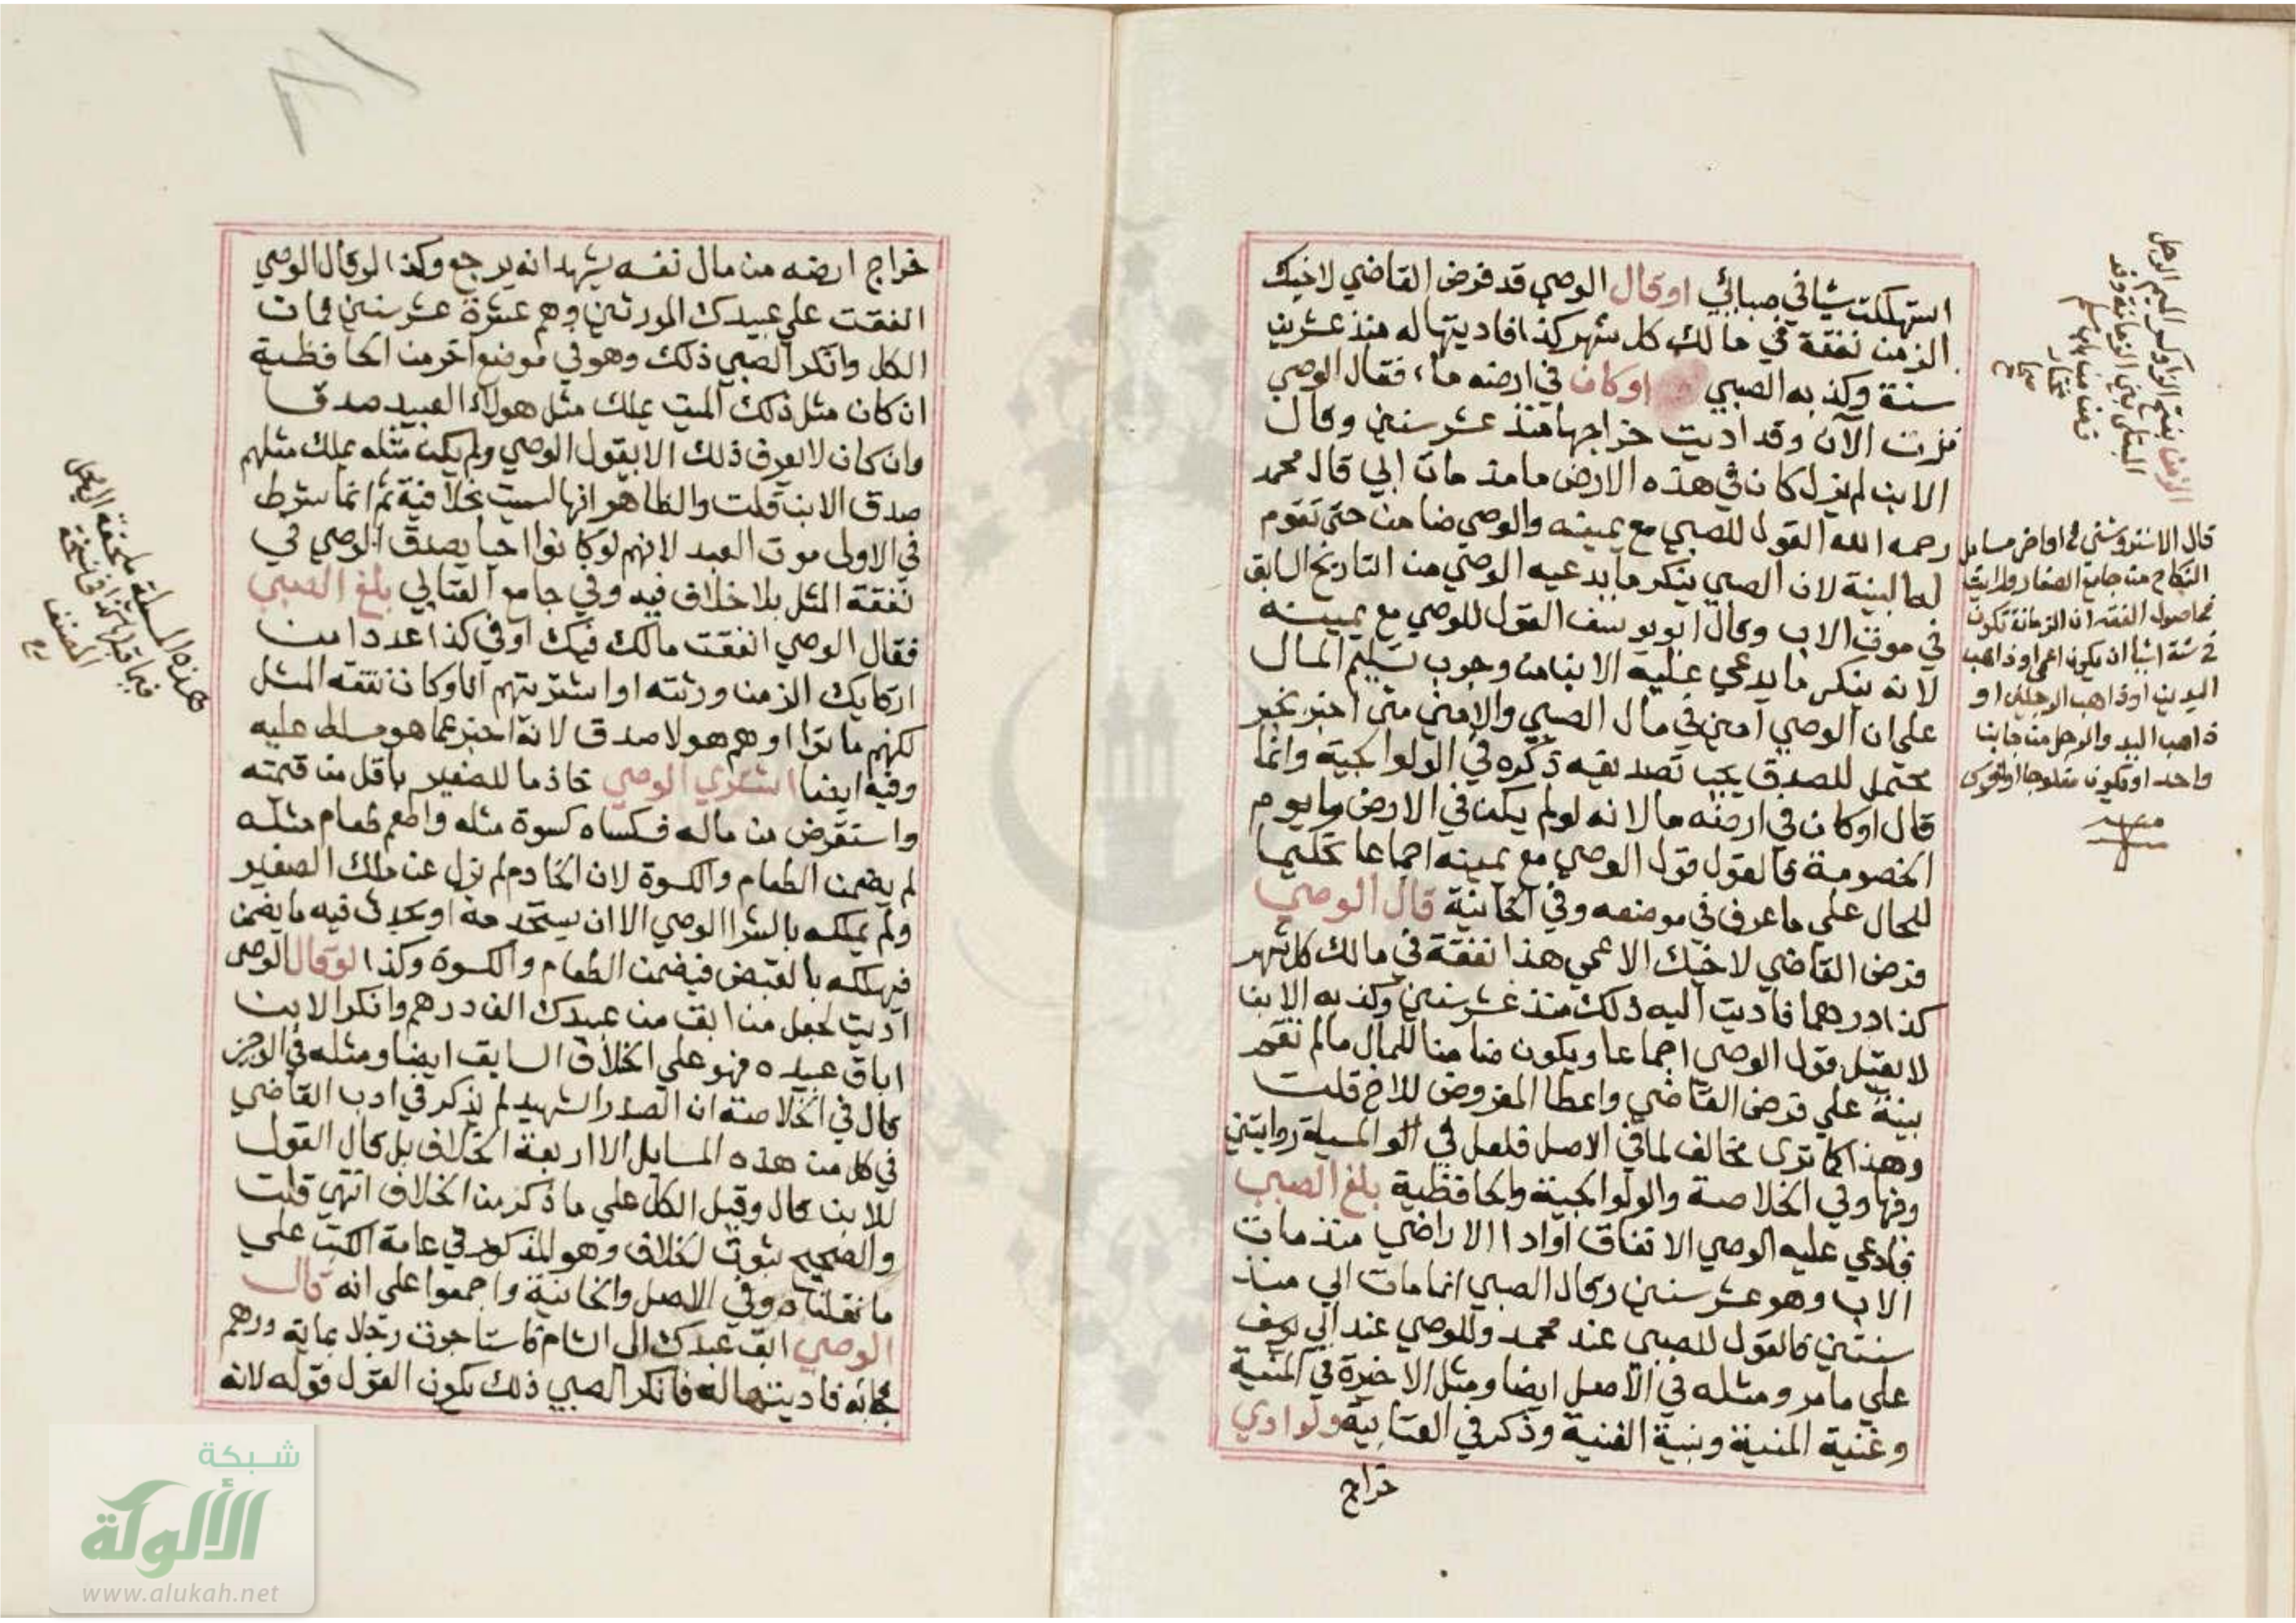 استهلكت شيا في صبائي او قال الوصي قد فرض القاضي لاخيك
الزمن نفقة في مالك كل شهر كذا فاديتها له منذ عشرين
سنة وكذبه الصبي او كان في ارضه ماء فقال الوصي
نزت الآن وقد اديت خراجها منذ عشر سنين وقال
الابن لم يزل كان في هذه الارض ما منذ مات ابي قال محمد
رحمه الله القول للصبي مع يمينه والوصي ضامن حتى تقوم
لها البينة لان الصبي ينكر ما يدعيه الوصي من التاريخ السابق
في موت الاب وقال ابو يوسف القول للوصي مع يمينه
لانه ينكر ما يدعي عليه الابن من وجوب تسليم المال
على ان الوصي امين في مال الصبي والامين متى اخبر بخبر
محتمل للصدق يجب تصديقه ذكره في الولوالجية وانما
قال او كان في ارضه ما لانه لو لم يكن في الارض ما يوم
الخصومة فالقول قول الوصي مع يمينه اجماعا تحكيما
للحال على ما عرف في موضعه وفي الخانية قال الوصي
فرض القاضي لاخيك الاعمي هذا نفقة في مالك كل شهر
كذا درهما فاديت اليه ذلك منذ عشر سنين وكذبه الابن
لا يقبل قول الوصي اجماعا ويكون ضامنا للمال ما لم تقم
بينة علي فرض القاضي واعطا المفروض للاخ قلت
وهذا كما ترى مخالف لما في الاصل فلعل في المسيلة روايتين
وفها وفي الخلاصة والولوالجية والحافظية بلغ الصبي
فادعي عليه الوصي الاتفاق او ادا الاراضي منذ مات
الاب وهو عشر سنين وقال الصبي انما مات ابي منذ
سنتين فالقول للصبي عند محمد وللوصي عند ابي يوسف
علي ما مر ومثله في الاصل ايضا ومثل الاخيرة في المنية
وغنية المنية وبنية القنية وذكر في العتابية ولو ادي
خراج
الزمن بفتح الزا وكسر الميم الرجل
المبتلى بين الزمانة وقد
زمن من باب سلم
مختار
صحاح
قال الاستروشني في اواخر مسايل
النكاح من جامع الصغار ورايت
في اصول الفقه ان الزمانة تكون
في ستة اشيا ان يكون اعمى او ذاهب
اليدين او ذاهب الرجلين او
ذاهب اليد والرجل من جانب
واحد او يكون مفلوجا او اخرس
خراج ارضه من مال نفسه يشهد انه يرجع وكذا لو قال الوصي
انفقت علي عبيدك المورثين وهم عشرة عشر سنين فمات
الكل وانكر الصبي ذلك وهو في موضع آخر من الحافظية
ان كان مثل ذلك الميت يملك مثل هولاء العبيد صدق
وان كان لا يعرف ذلك الا بقول الوصي ولم يكن مثله يملك مثلهم
صدق الابن قلت والظاهر انها ليست بخلافية ثم انما شرط
في الاولى موت العبد لانهم لو كانوا احيا يصدق الوصي في
نفقة المثل بلا خلاف فيه وفي جامع الفتاوي بلغ الصبي
فقال الوصي انفقت مالك فيك او في كذا عددا من
ارقايك الزمن ورثته او اشتريتهم لك وكان نفقة المثل
لكنهم ماتوا او هم هولا صدق لانه اخبر عما هو مسلط عليه
وفيه ايضا اشتري الوصي خادما للصغير باقل من قيمته
واستقرض من ماله فكساه كسوة مثله واطعم طعام مثله
لم يضمن الطعام والكسوة لان الخادم لم يزل عن ملك الصغير
ولم يملكه بالشرا الوصي الا ان يستخدمه او يحدث فيه ما يضمن
فيهلكه بالقبض فيضمن الطعام والكسوة وكذا لو قال الوصي
اديت لجعل من ابق من عبيدك الف درهم وانكر الابن
اباق عبيده فهو علي الخلاف السابق ايضا ومثله في الوجيز
قال في الخلاصة ان الصدر الشهيد لم يذكر في ادب القاضي
في كل من هذه المسايل الاربعة الخلاف بل قال القول
للابن قال وقيل الكل علي ما ذكر من الخلاف انتهي قلت
والصحيح ثبوت الخلاف وهو المذكور في عامة الكتب علي
ما نقلناه وفي الاصل والخانية واجمعوا على انه قال
الوصي ابق عبدك الى الشام فاستاجرت رجلا بماية درهم
فجا به فاديتها له فانكر الصبي ذلك يكون القول قوله لانه
هذه المسيلة ملحقة
فيما قبل هكذا في نسخة
المصنف
شبكة
الألوكة
www.alukah.net